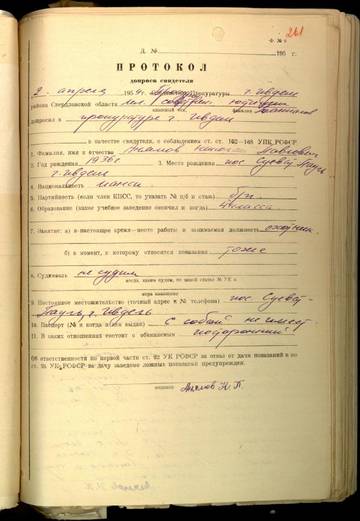 261
Ф. № 9
Д. № 195 г.
ПРОТОКОЛ
допроса свидетеля
2 апреля 1959 г. Прокуратуры г. Ивделя
района Свердловской области мл. советник юстиции
допросил в прокуратуре г. Ивдель
в качестве свидетеля, с соблюдением ст. ст. 162—168 УПК РСФСР
1. Фамилия, имя и отчество Павлович
2. Год рождения 1936 г. 3. Место рождения пос Суеват-Пауль
г. Ивделя
4. Национальность манси
5. Партийность (если член КПСС, то указать № п/б и стаж) б/п.
6. Образование (какое учебное заведение окончил и когда) 4 класса
7. Занятие: а) в настоящее время—место работы и занимаемая должность охотник
б) в момент, к которому относятся показания тоже
8. Судимость не судим
9. Постоянное местожительство (точный адрес и № телефона) пос Суеват-
Пауль г. Ивдель
10. Паспорт (№ и когда и кем выдан) с собой не имеет
11. В каких отношениях состоит с обвиняемым посторонний
Об ответственности по первой части ст. 92 УК РСФСР за отказ от дачи показаний и по
ст. 95 УК РСФСР за дачу заведомо ложных показаний предупрежден.
подпись Анямов Н П.